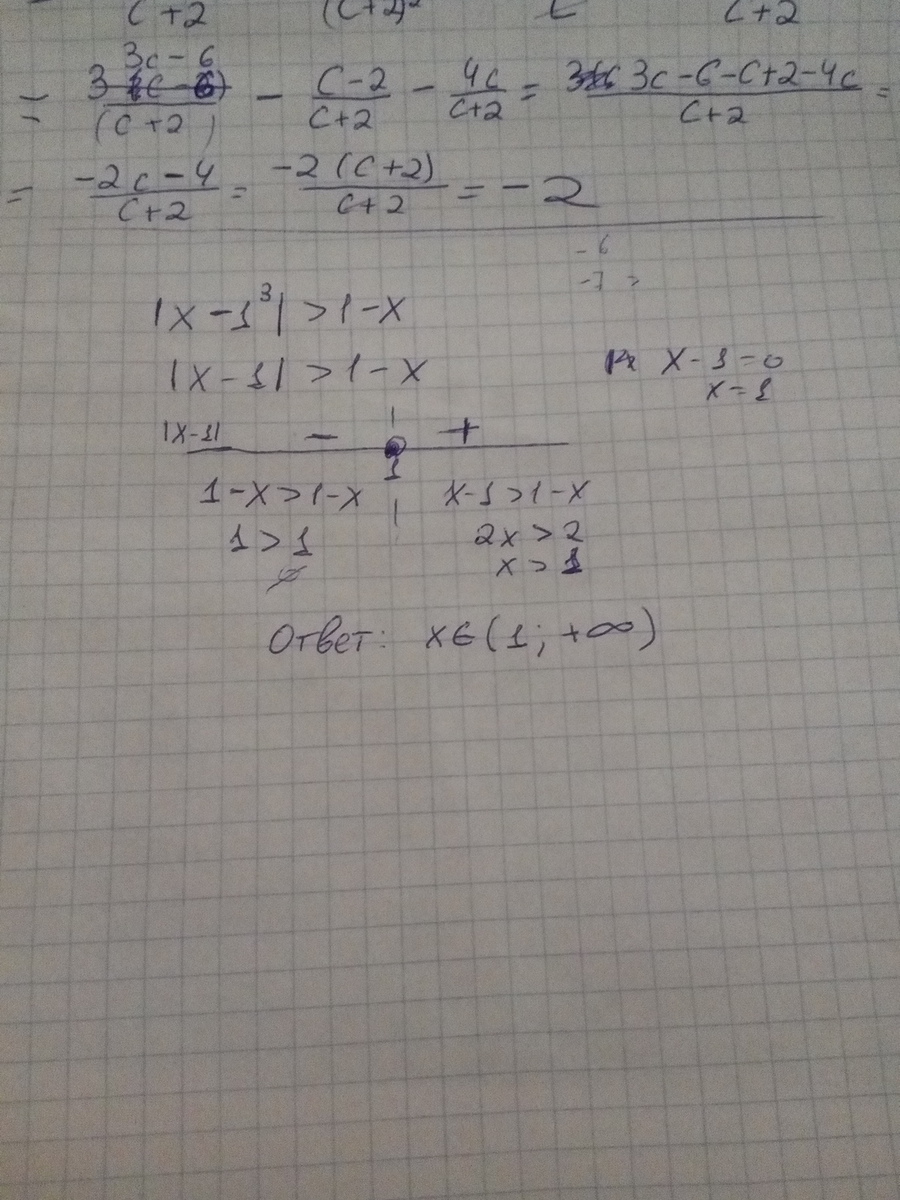 C+2 (C+2)² C+2
3c-6
= 3 (c-6)/(c+2) - (c-2)/(c+2) - 4c/(c+2) = (3c-6-c+2-4c)/(c+2) =
= (-2c-4)/(c+2) = (-2(c+2))/(c+2) = -2
-6
-7 =
|x-1³| > 1-x
|x-1| > 1-x
x-1=0
x=1
|x-1| - +
1
1-x>1-x x-1>1-x
1>1 2x>2
∅ x>1
Ответ: x∈(1; +∞)